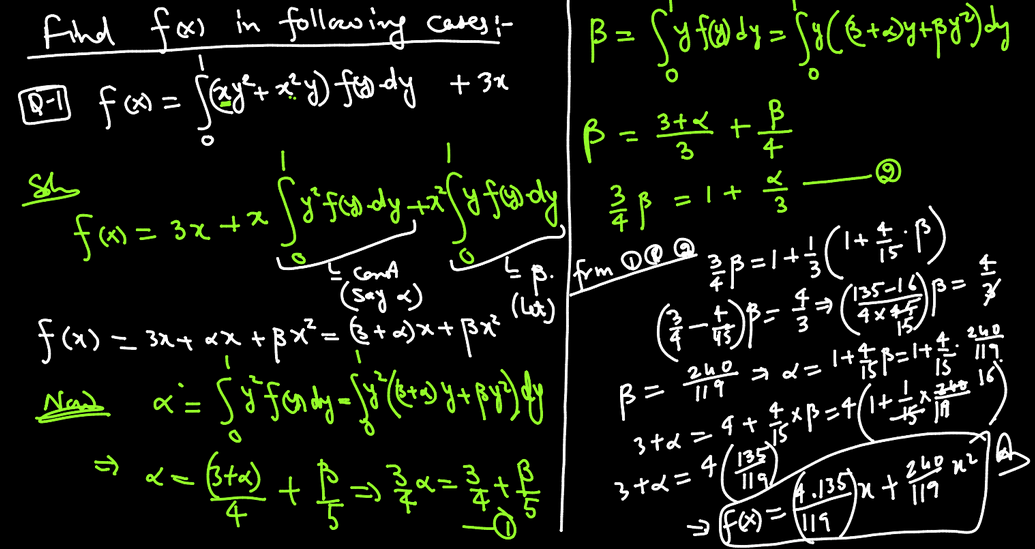 Find f(x) in following cases:-
Q-1 f(x) = ∫₀¹ (xy² + x²y) f(y)·dy + 3x
Sol
f(x) = 3x + x ∫₀¹ y² f(y)·dy + x² ∫₀¹ y f(y)·dy
= const (say α)
= β. (let)
f(x) = 3x + αx + βx² = (3+α)x + βx²
Now α = ∫₀¹ y² f(y) dy = ∫₀¹ y² ((3+α)y + βy²) dy
⇒ α = (3+α)/4 + β/5 ⇒ 3/4 α = 3/4 + β/5 —①
β = ∫₀¹ y f(y) dy = ∫₀¹ y((3+α)y + βy²) dy
β = (3+α)/3 + β/4
3/4 β = 1 + α/3 —②
from ① & ② 3/4 β = 1 + 1/3 (1 + 4/15 · β)
(3/4 − 4/45) β = 4/3 ⇒ ((135−16)/(4×45 15)) β = 4/3
β = 240/119 ⇒ α = 1 + 4/15 β = 1 + 4/15 · 240/119
3+α = 4 + 4/15 × β = 4(1 + 1/15 × 240 16/119)
3+α = 4(135/119)
⇒ f(x) = (4.135/119) x + 240/119 x²